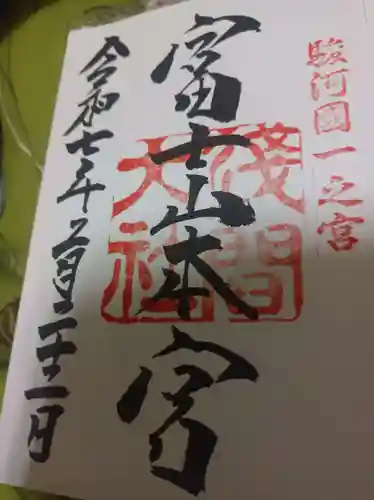 駿河國一之宮
富士山本宮
淺間大社
令和七年五月二十二日